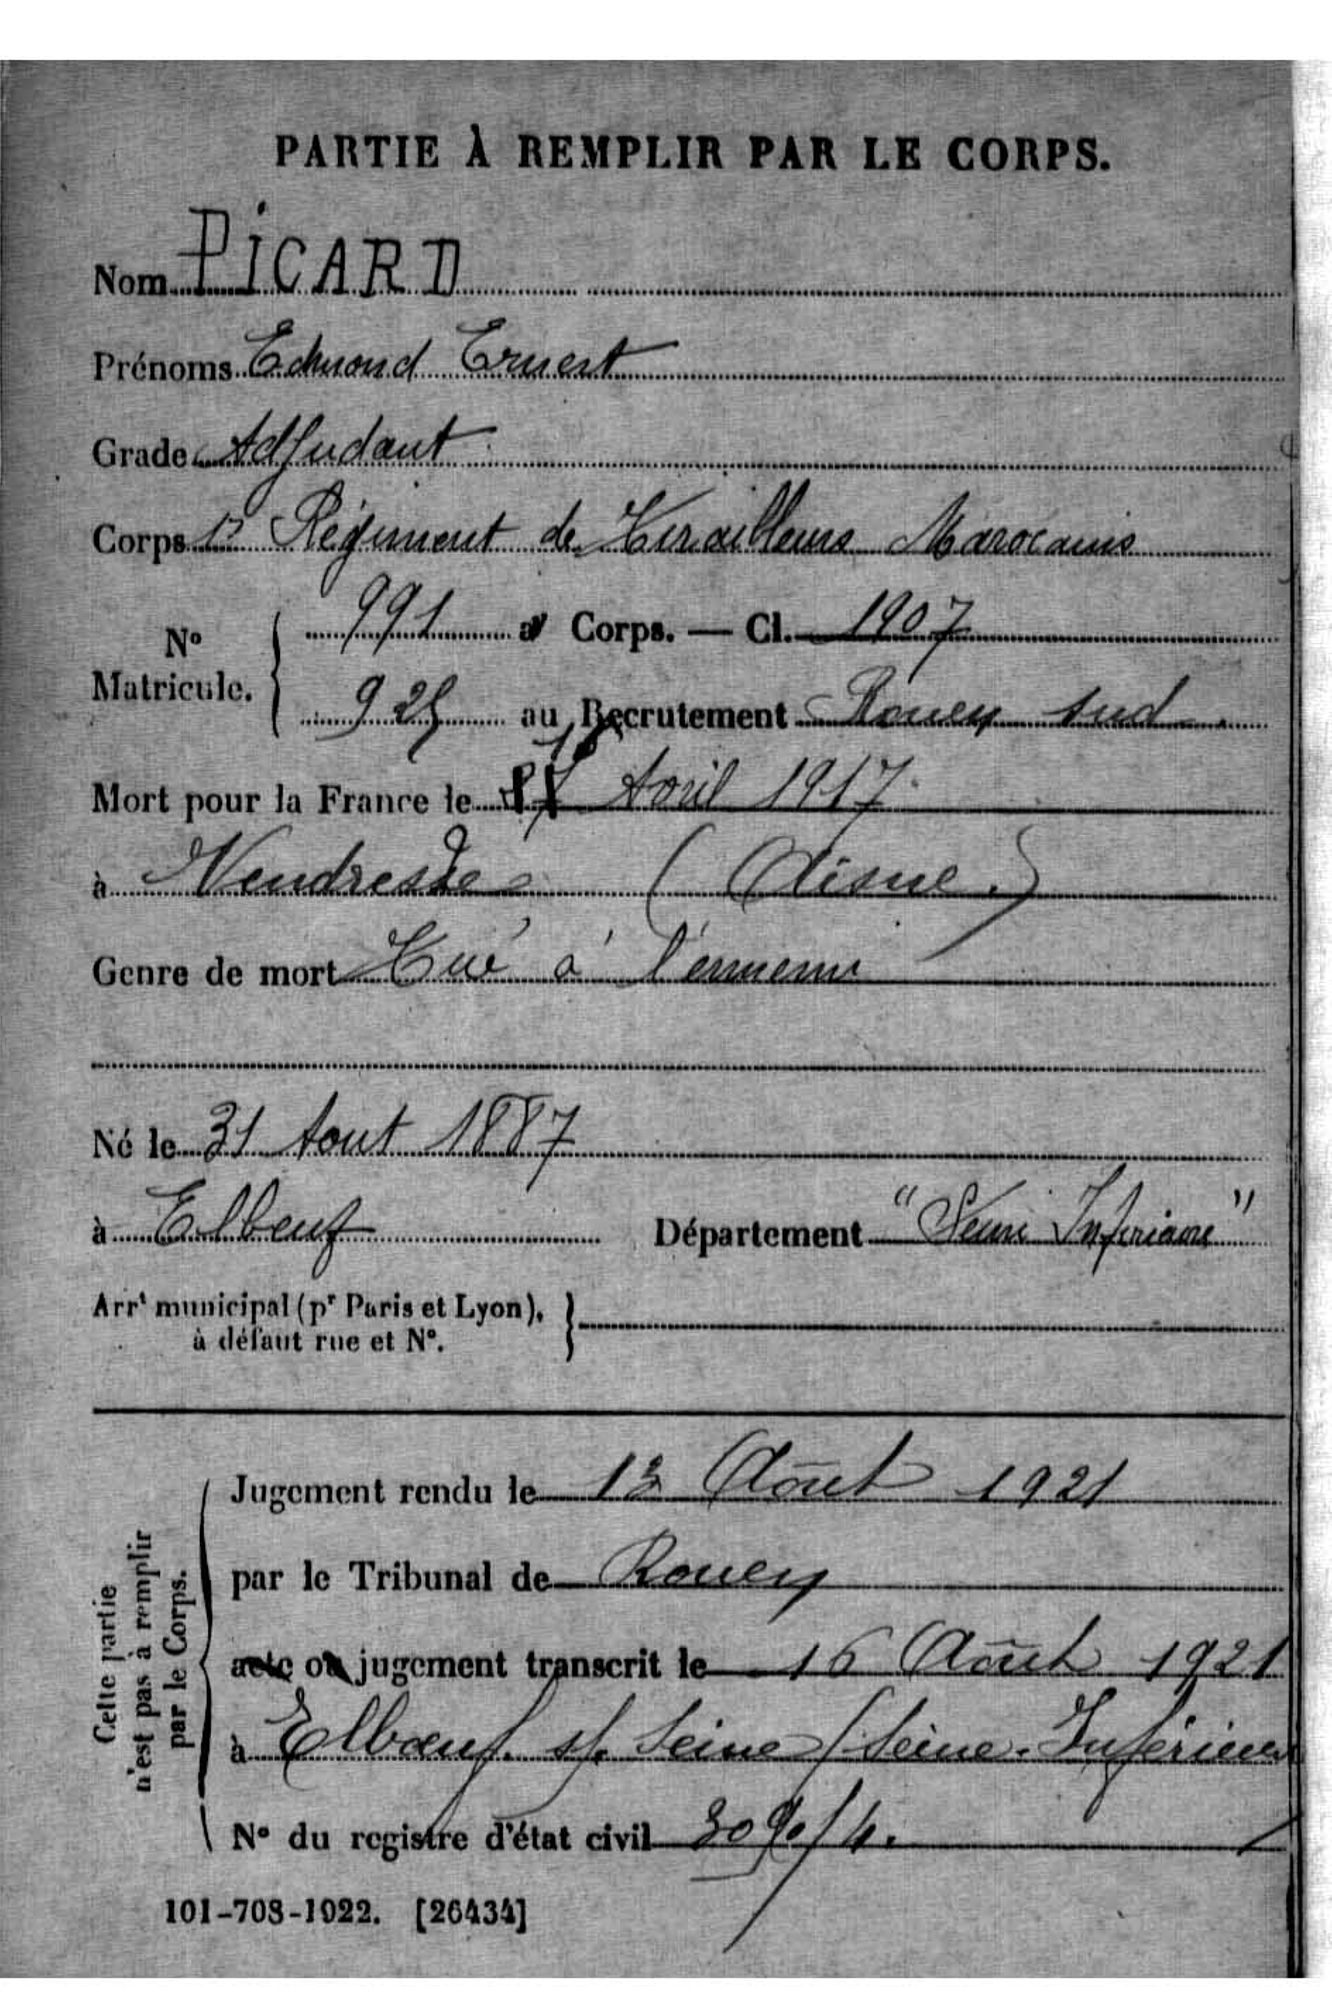 PARTIE À REMPLIR PAR LE CORPS.
Nom PICARD
Prénoms Edmond Ernest
Grade Adjudant
Corps 1r Régiment de Tirailleurs Marocains
N° Matricule. { 991 au Corps. — Cl. 1907
925 au Recrutement Rouen Sud
16
Mort pour la France le Avril 1917
à Vendresse (Aisne)
Genre de mort Tué à l'ennemi
Né le 31 Aout 1887
à Elbeuf Département "Seine Inférieure"
Arrt municipal (pr Paris et Lyon), }
à défaut rue et N°.
Cette partie n'est pas à remplir par le Corps.
Jugement rendu le 13 Août 1921
par le Tribunal de Rouen
acte ou jugement transcrit le 16 Août 1921
à Elbœuf s/ Seine (Seine-Inférieure
N° du registre d'état civil
101-708-1922. [26434]